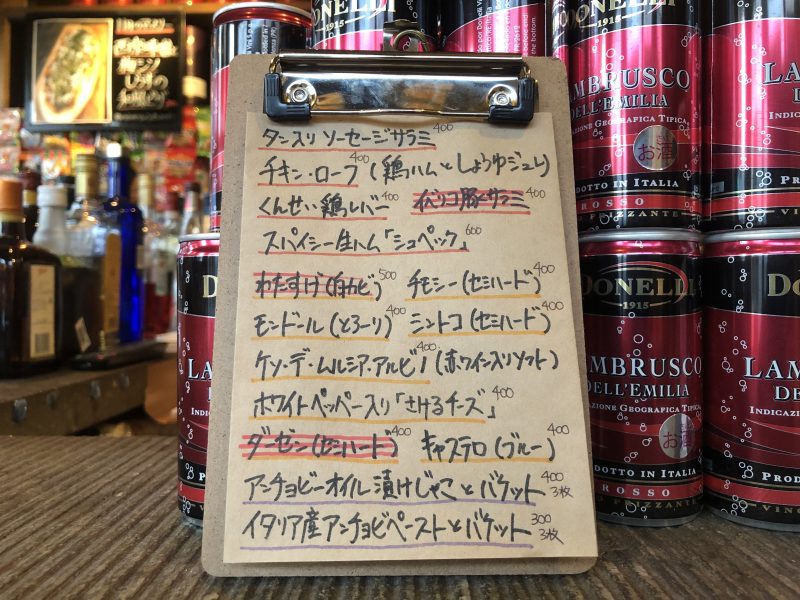 タン入り ソーセージサラミ 400
チキン・ローフ 400 (鶏ハムとしょうゆジュレ)
くんせい鶏レバー 400 イベリコ豚サラミ 400
スパイシー生ハム「シュペック」 600
わたすげ(白カビ) 500 チモシー(セミハード) 400
モンドール(とろーり) 400 シントコ(セミハード) 400
ケソ・デ・ムルシア・アルビノ 400 (赤ワイン入りソフト)
ホワイトペッパー入り「さけるチーズ」 400
ダーゼン(セミハード) 400 キャステロ(ブルー) 400
アンチョビーオイル漬けじゃことバケット 400 3枚
イタリア産アンチョビペーストとバケット 300 3枚
DONELLI
1915
LAMBRUSCO
DELL'EMILIA
INDICAZIONE GEOGRAFICA TIPICA
お酒
PRODOTTO IN ITALIA
ROSSO
FRIZZANTE
DONELLI
1915
LAMBRUSCO
DELL'EMILIA
INDICAZIONE GEOGRAFICA TIPICA
お酒
PRODOTTO IN ITALIA
ROSSO